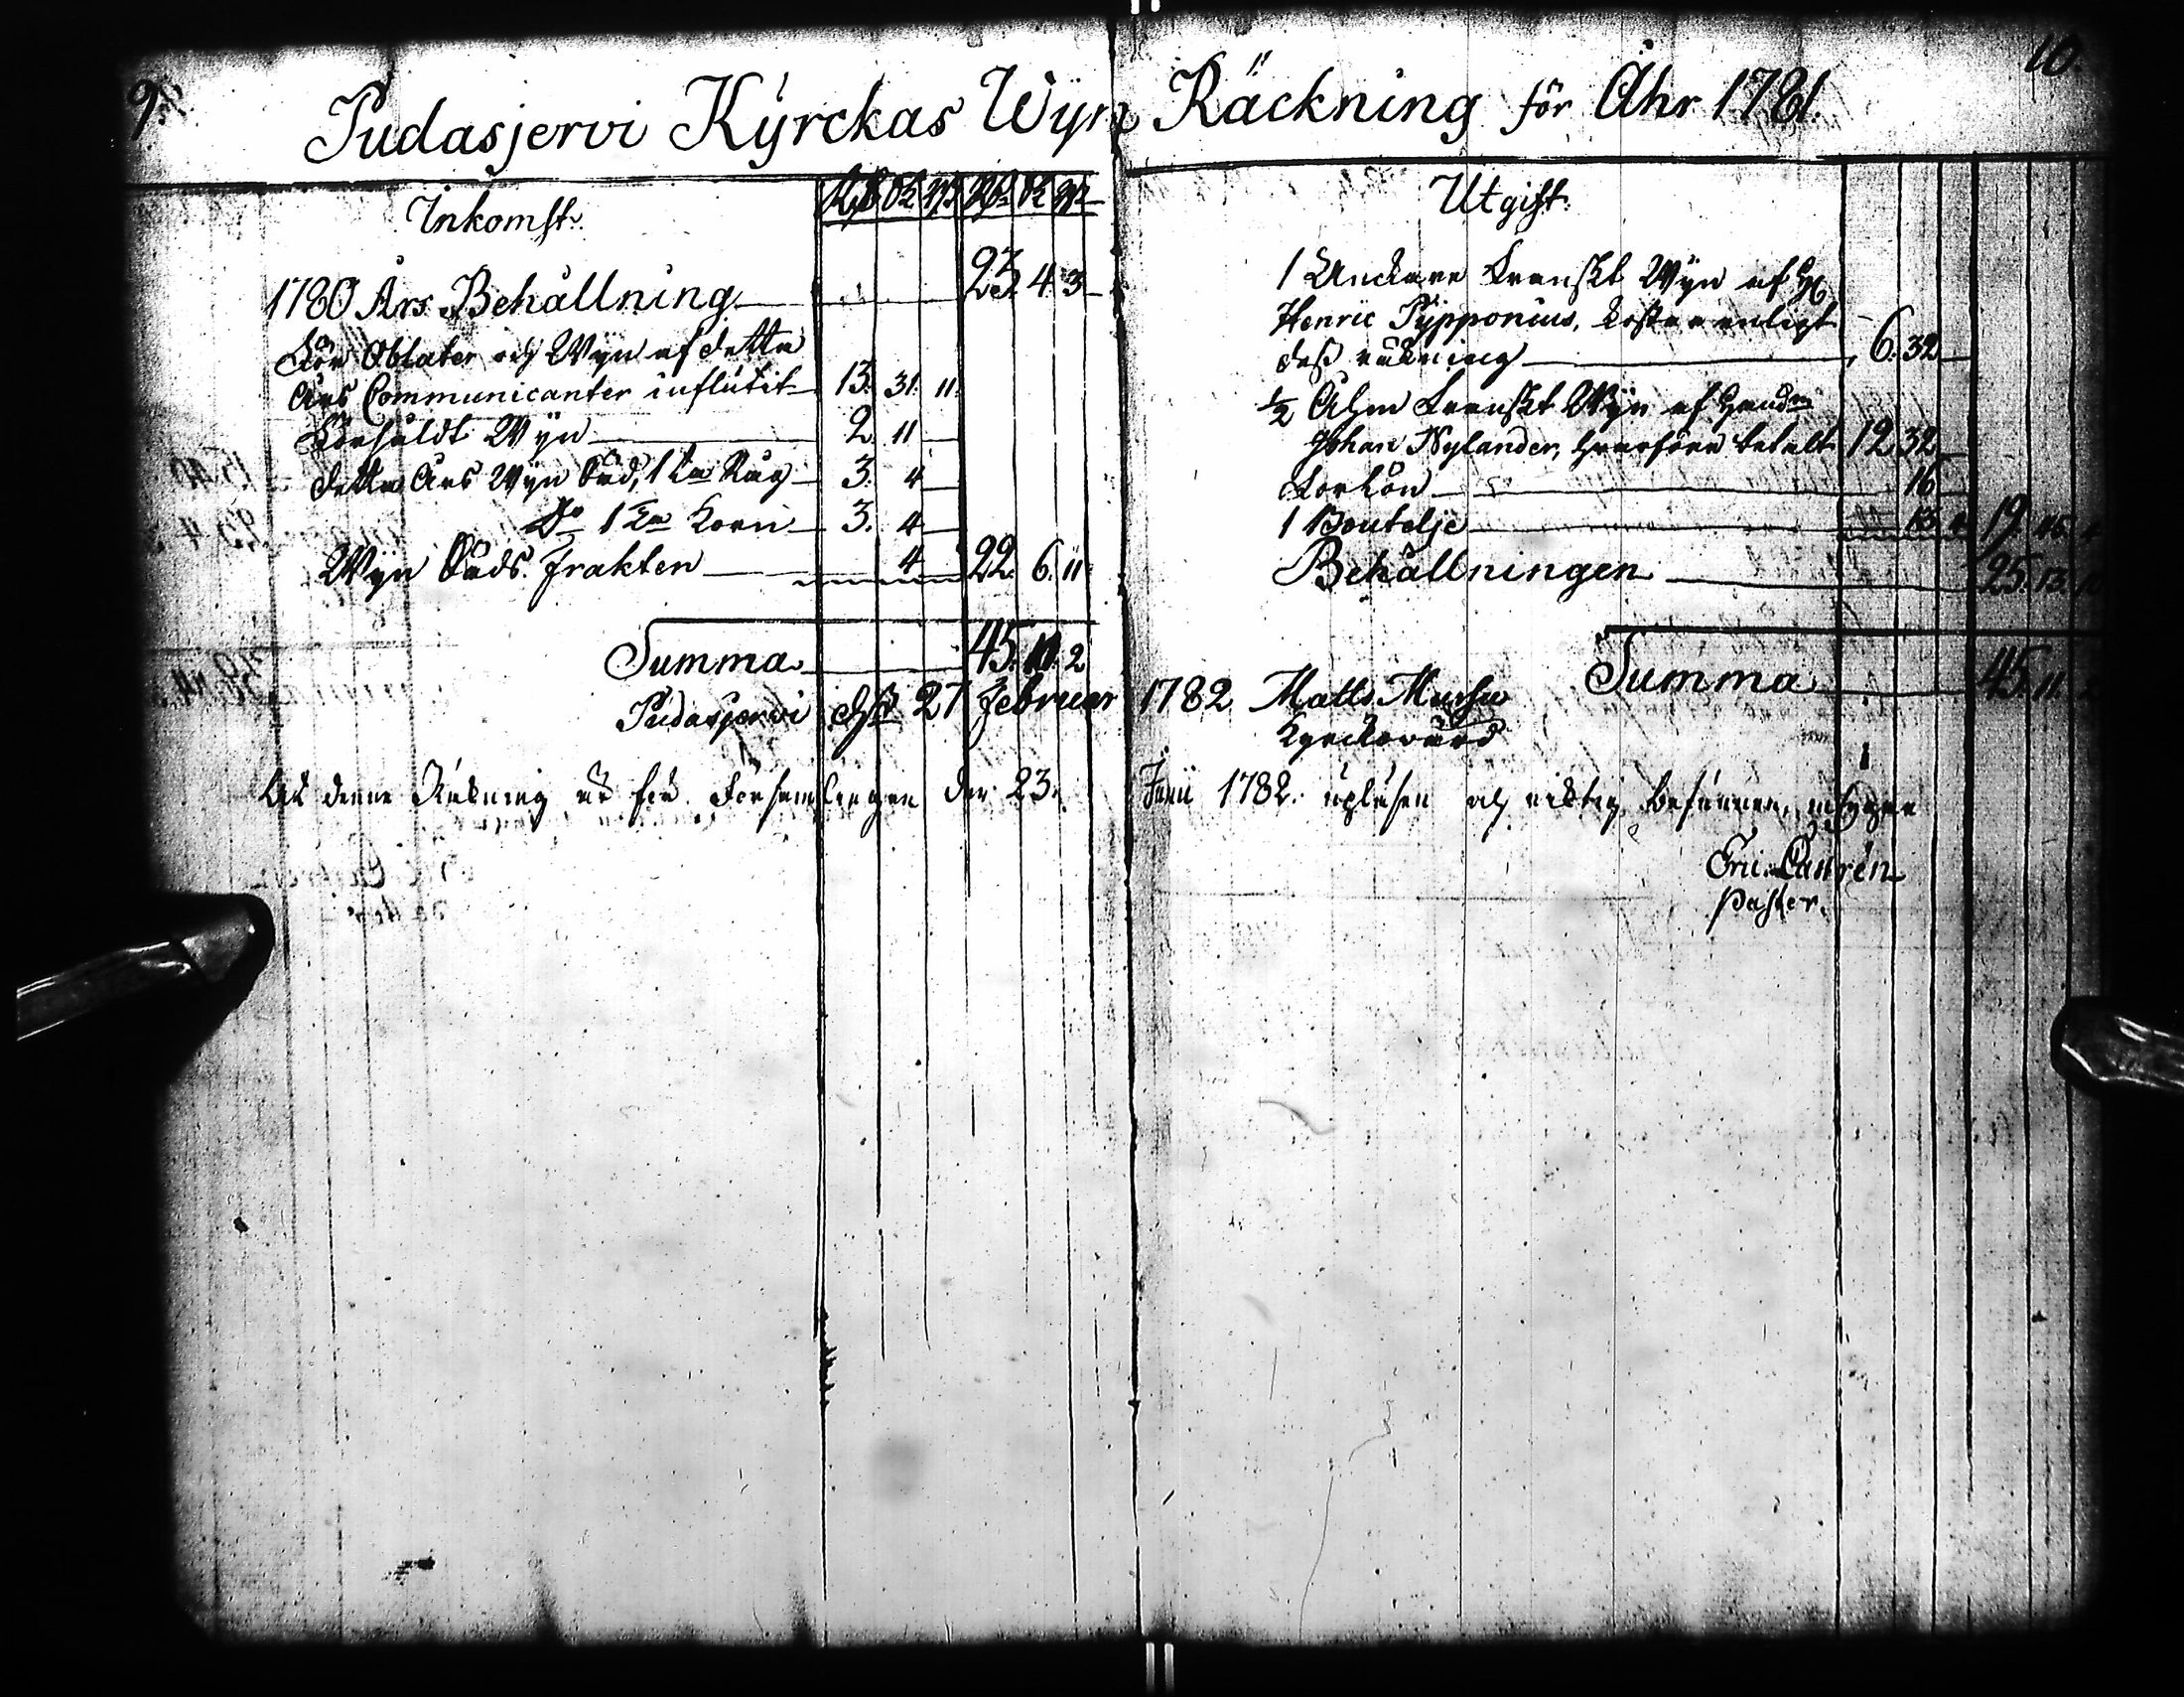 9.
10.
Pudasjervi Kyrckas Wyn Räckning för Åhr 1781.
Inkomst.
1780 Års Behållning 23. 4. 3
För Oblater och Wyn af detta
Års Communicanter influtit 13. 31. 11.
Försåldt Wyn 2. 11
detta Års Wyn Säd, 1 Tna Råg 3. 4
Do 1 Tna Korn 3. 4
Wyn Säds. Frakten 4 22. 6. 11
Summa 45. 11. 2
Pudasjervi d. 27 Februar 1782. Matts
Kyrckovärd
Utgift.
1 Anckare Franskt Wyn af H.
Henric Pypponius, kostar enligt
dess räkning 6. 32
1/2 Ahm Franskt Wyn af Handm
Johan Nylander, hvarföre betalt 12 32
16
1 Boutelje 19.
Behållningen 25.
Summa 45. 11.
At denne Räkning är för Församlingen den 23. Junii 1782. upläsen och riktig befunnen, intygar
Eric Cajrén
Pastor.